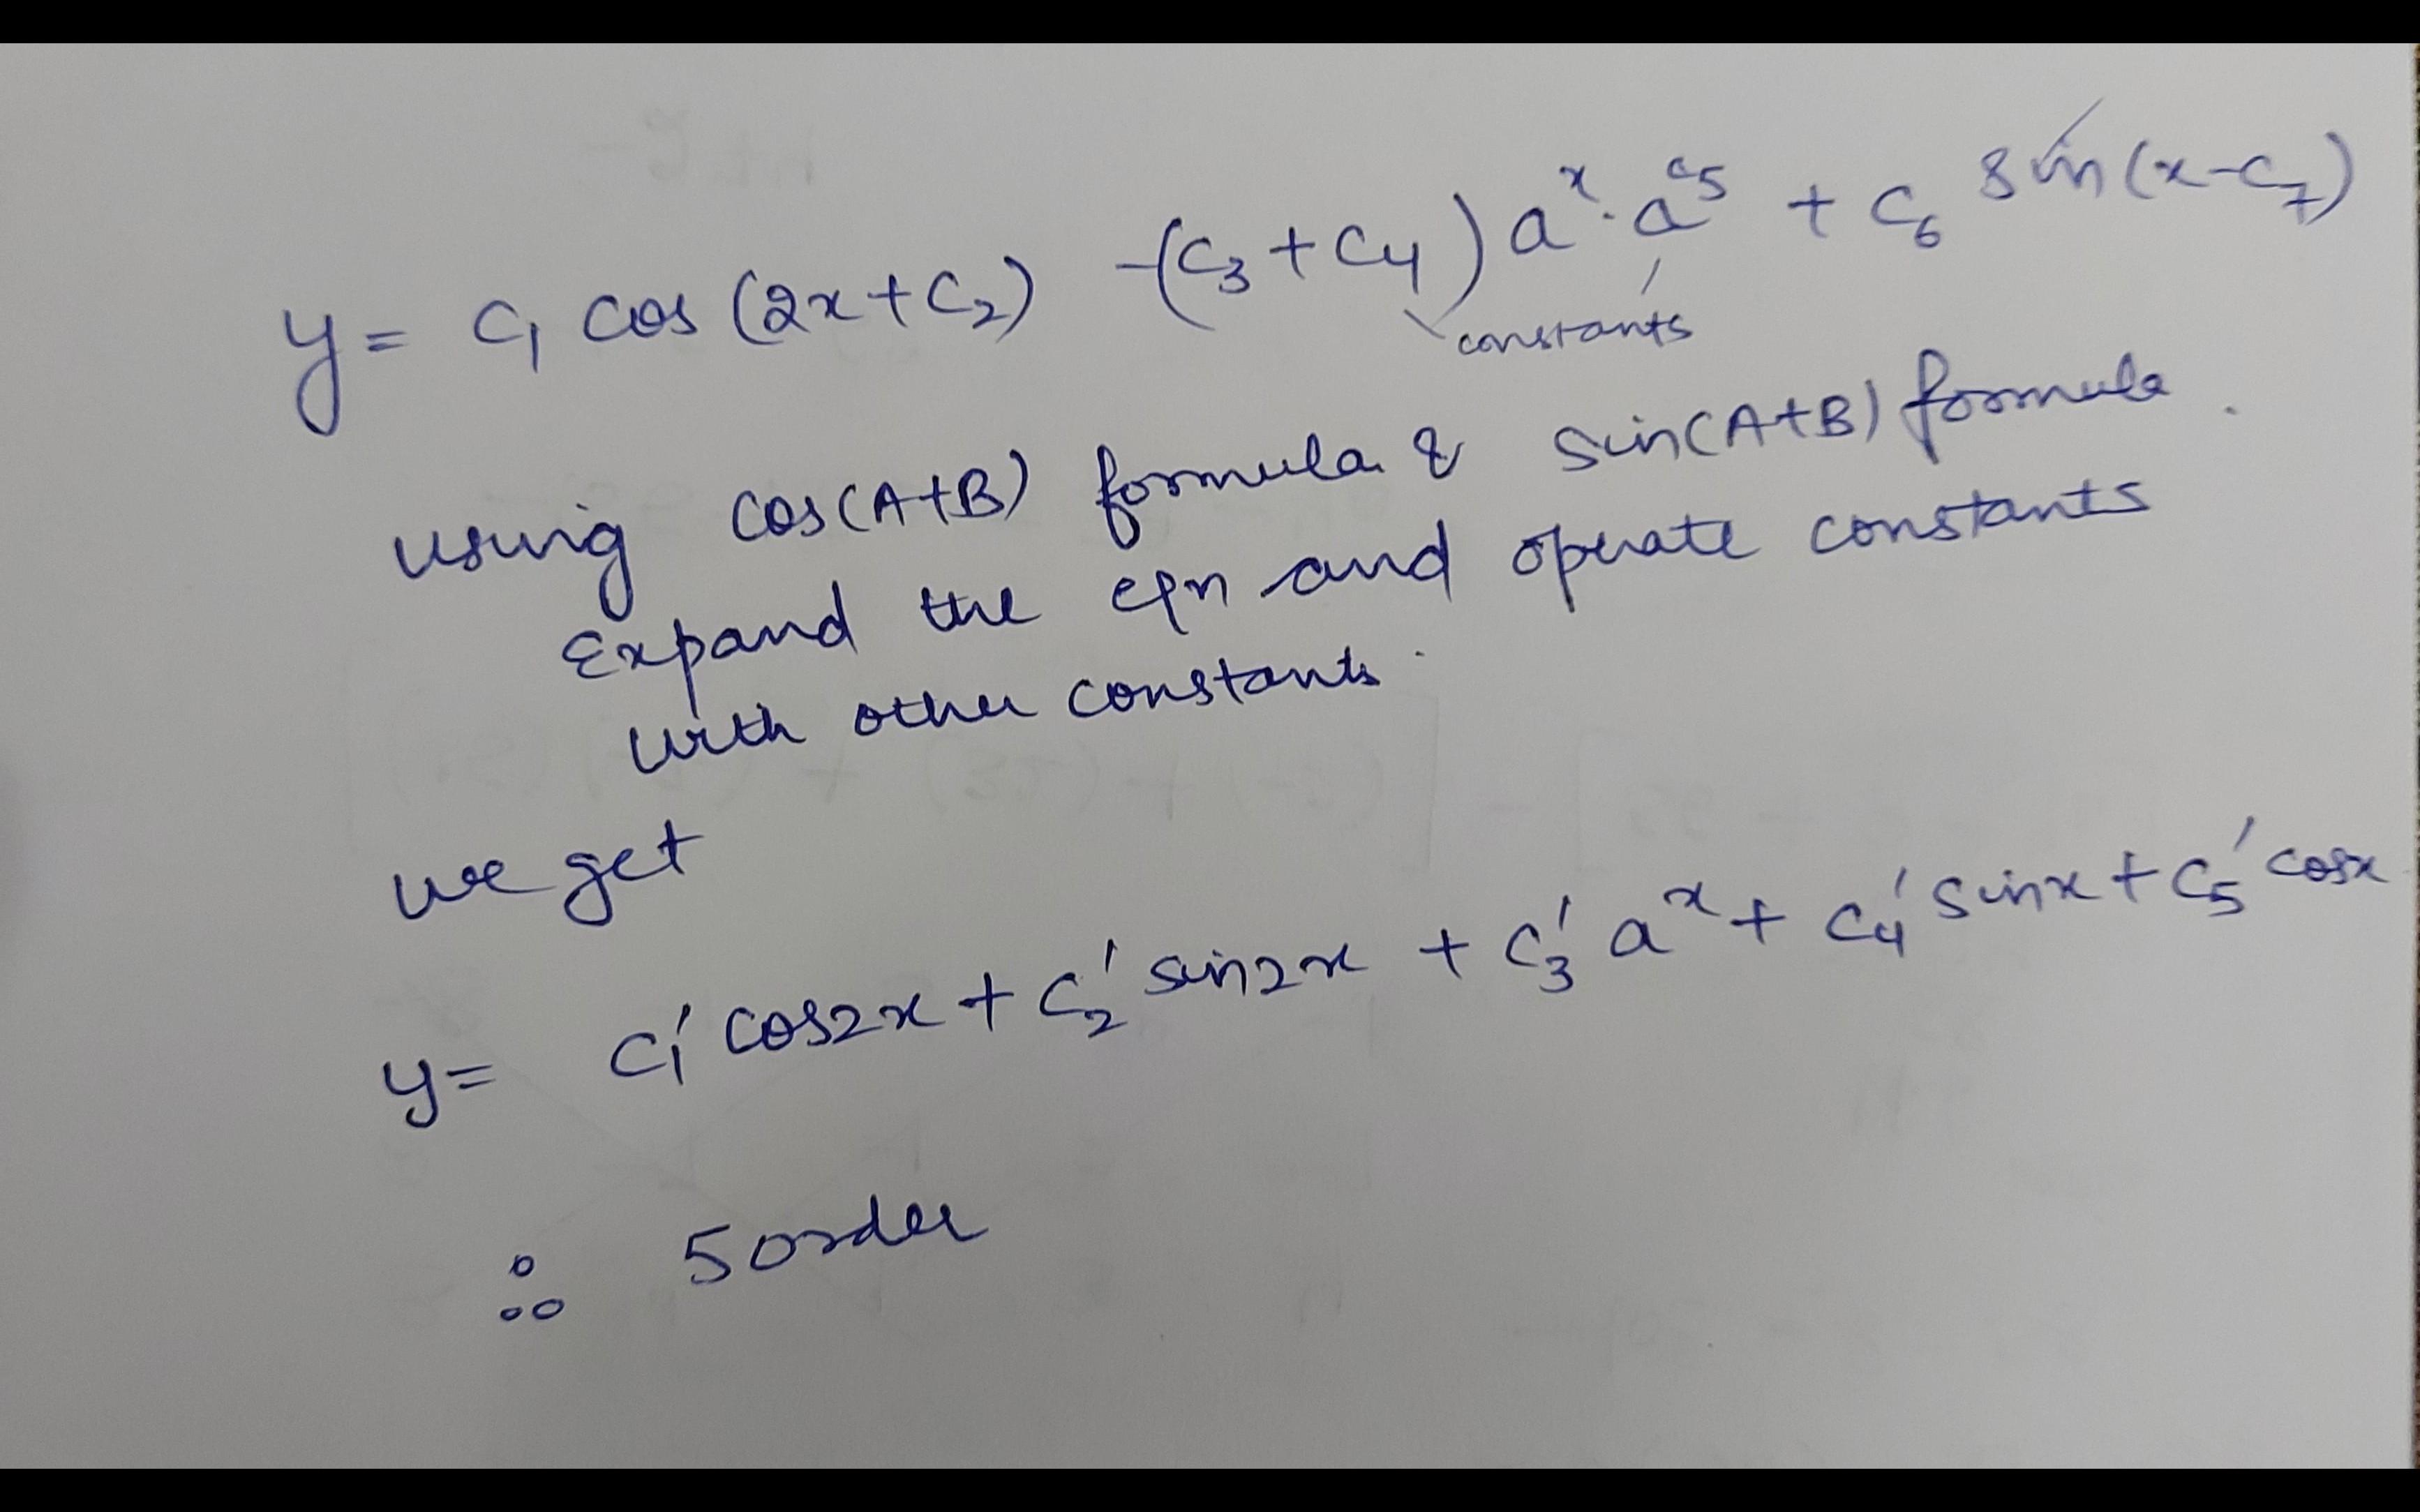 y = c₁ cos (2x + c₂) -(c₃ + c₄) aˣ · a^c₅ + c₆ sin (x - c₇)
constants
using cos(A+B) formula & sin(A+B) formula.
Expand the eqn and operate constants
with other constants.
we get
y = c₁' cos2x + c₂' sin2x + c₃' aˣ + c₄' sinx + c₅' cosx
∴ 5 order